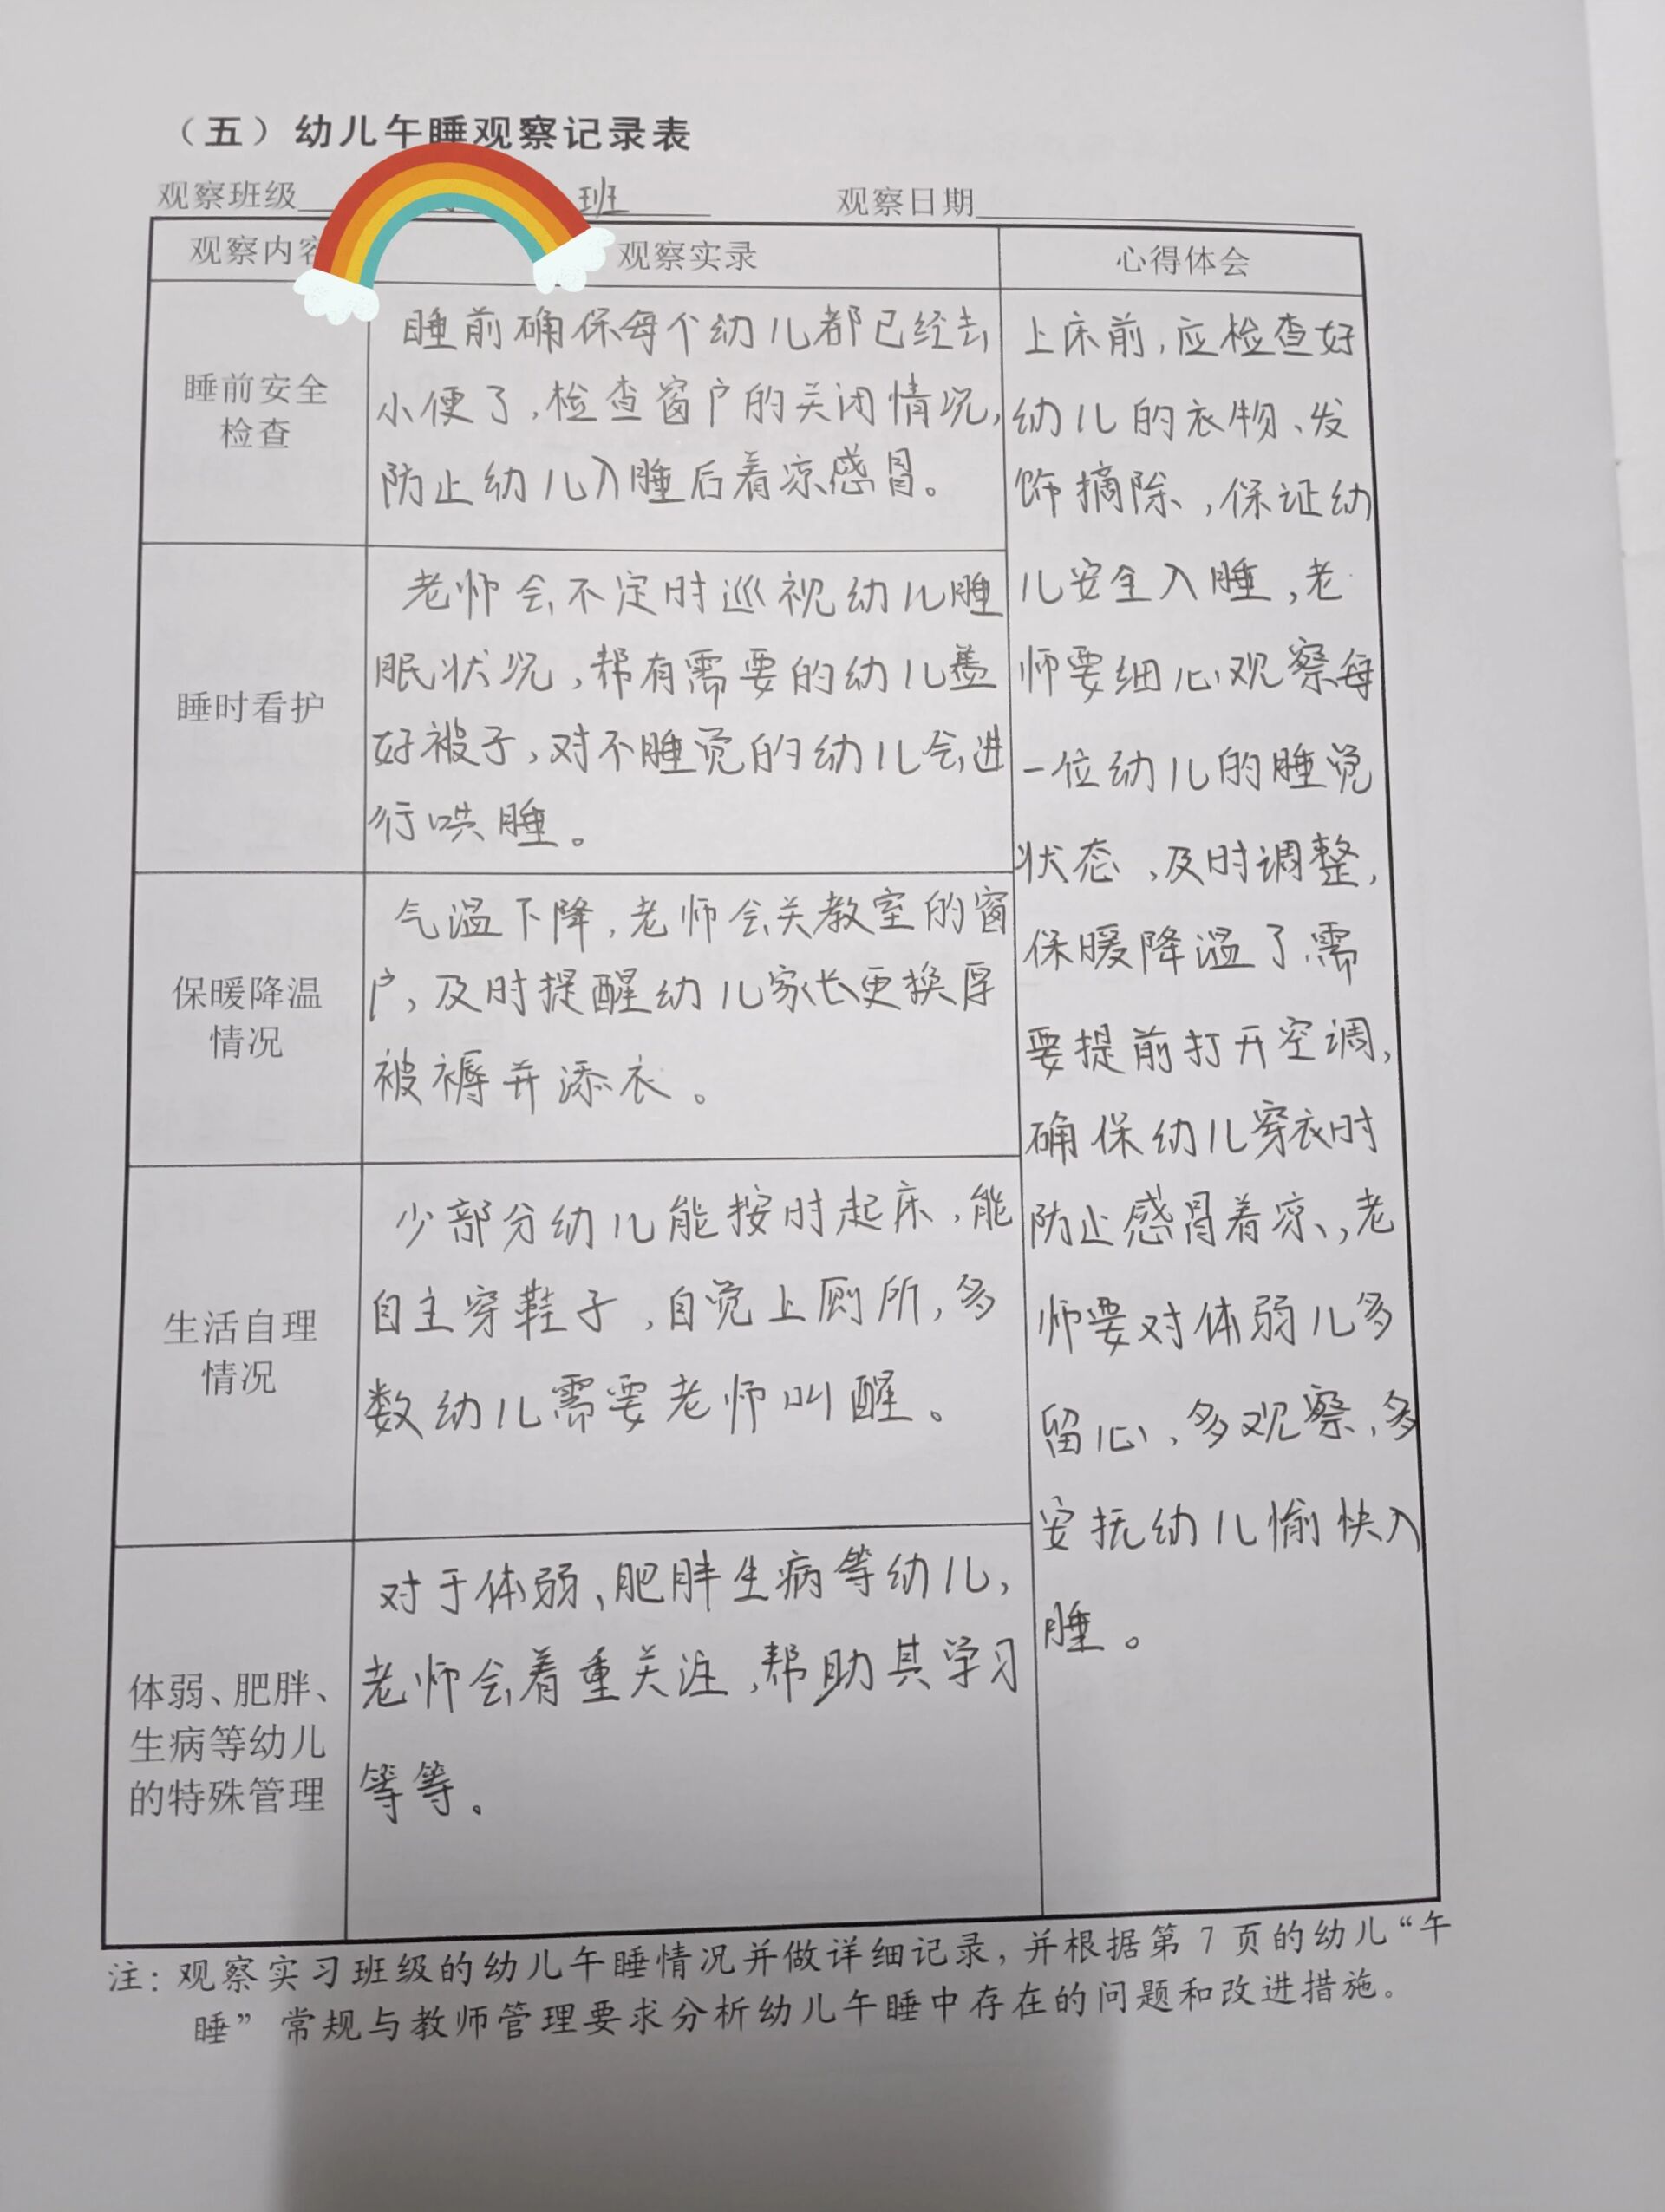 （五）幼儿午睡观察记录表
观察班级 班 观察日期
观察内容 观察实录 心得体会
睡前安全
检查
睡前确保每个幼儿都已经去
小便了,检查窗户的关闭情况,
防止幼儿入睡后着凉感冒。
睡时看护
老师会不定时巡视幼儿睡
眠状况,帮有需要的幼儿盖
好被子,对不睡觉的幼儿会进
行哄睡。
保暖降温
情况
气温下降,老师会关教室的窗
户,及时提醒幼儿家长更换厚
被褥并添衣。
生活自理
情况
少部分幼儿能按时起床,能
自主穿鞋子,自觉上厕所,多
数幼儿需要老师叫醒。
体弱、肥胖、
生病等幼儿
的特殊管理
对于体弱、肥胖生病等幼儿,
老师会着重关注,帮助其学习
等等。
上床前,应检查好
幼儿的衣物、发
饰摘除、,保证幼
儿安全入睡,老
师要细心观察每
一位幼儿的睡觉
状态,及时调整,
保暖降温了需
要提前打开空调,
确保幼儿穿衣时
防止感冒着凉、,老
师要对体弱儿多
留心、多观察,多
安抚幼儿愉快入
睡。
注：观察实习班级的幼儿午睡情况并做详细记录，并根据第 7 页的幼儿“午
睡”常规与教师管理要求分析幼儿午睡中存在的问题和改进措施。